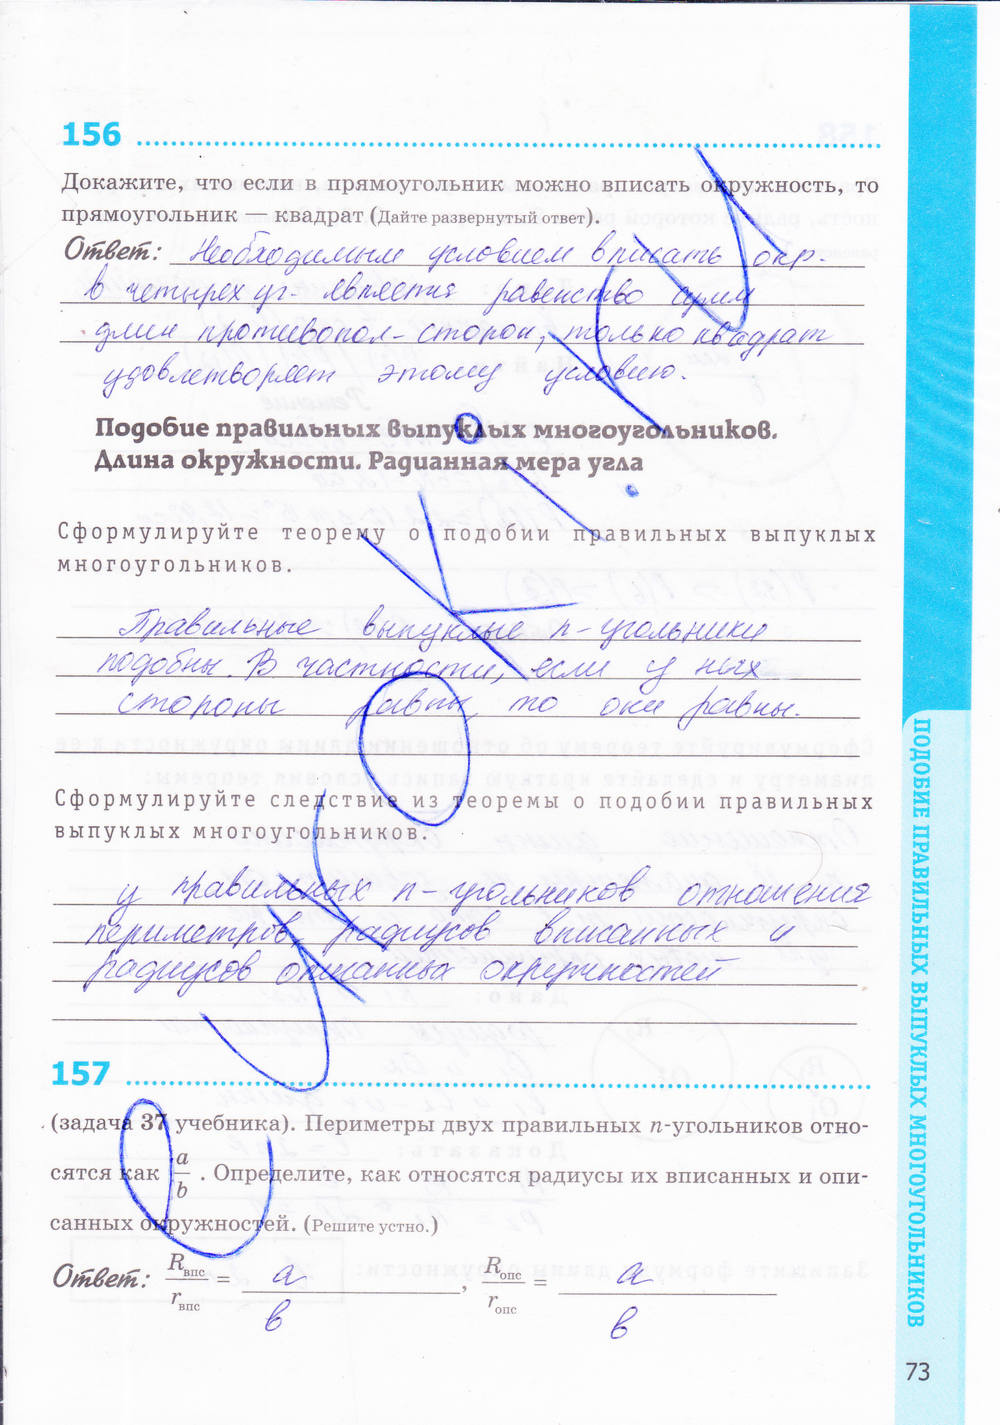 156
Докажите, что если в прямоугольник можно вписать окружность, то
прямоугольник — квадрат (Дайте развернутый ответ).
Ответ: Необходимым условием вписать окр-
в четырех уг- является равенство сумм
длин противопол-сторон, только квадрат
удовлетворяет этому условию.
Подобие правильных выпуклых многоугольников.
Длина окружности. Радианная мера угла
Сформулируйте теорему о подобии правильных выпуклых
многоугольников.
Правильные выпуклые n-угольники
подобны. В частности, если у них
стороны равны, то они равны.
Сформулируйте следствие из теоремы о подобии правильных
выпуклых многоугольников.
у правильных n-угольников отношения
периметров, радиусов вписанных и
радиусов описанных окружностей
157
(задача 37 учебника). Периметры двух правильных n-угольников отно-
сятся как a/b. Определите, как относятся радиусы их вписанных и опи-
санных окружностей. (Решите устно.)
Ответ: Rвпс/rвпс = a/в, Rопс/rопс = a/в
ПОДОБИЕ ПРАВИЛЬНЫХ ВЫПУКЛЫХ МНОГОУГОЛЬНИКОВ
73